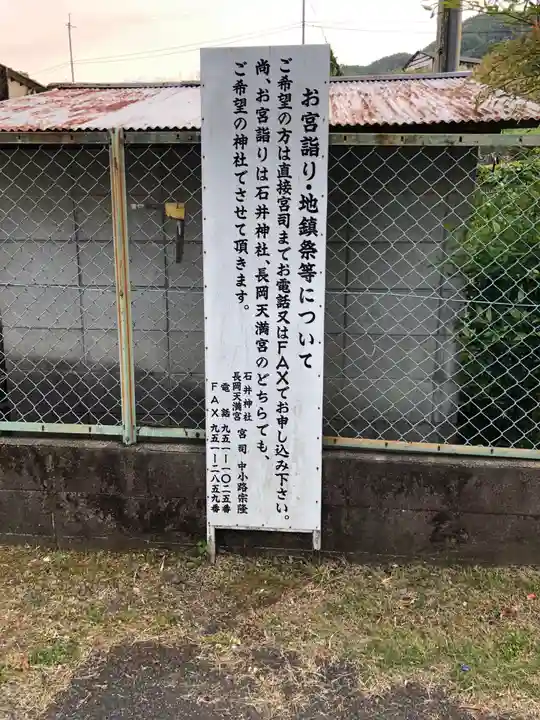 お宮詣り・地鎮祭等について
ご希望の方は直接宮司までお電話又はFAXでお申し込み下さい。
尚、お宮詣りは石井神社、長岡天満宮のどちらでも、
ご希望の神社でさせて頂きます。
石井神社
長岡天満宮
宮司 中小路宗隆
電話 九五一ー一〇二五番
FAX 九五一ー二八五九番